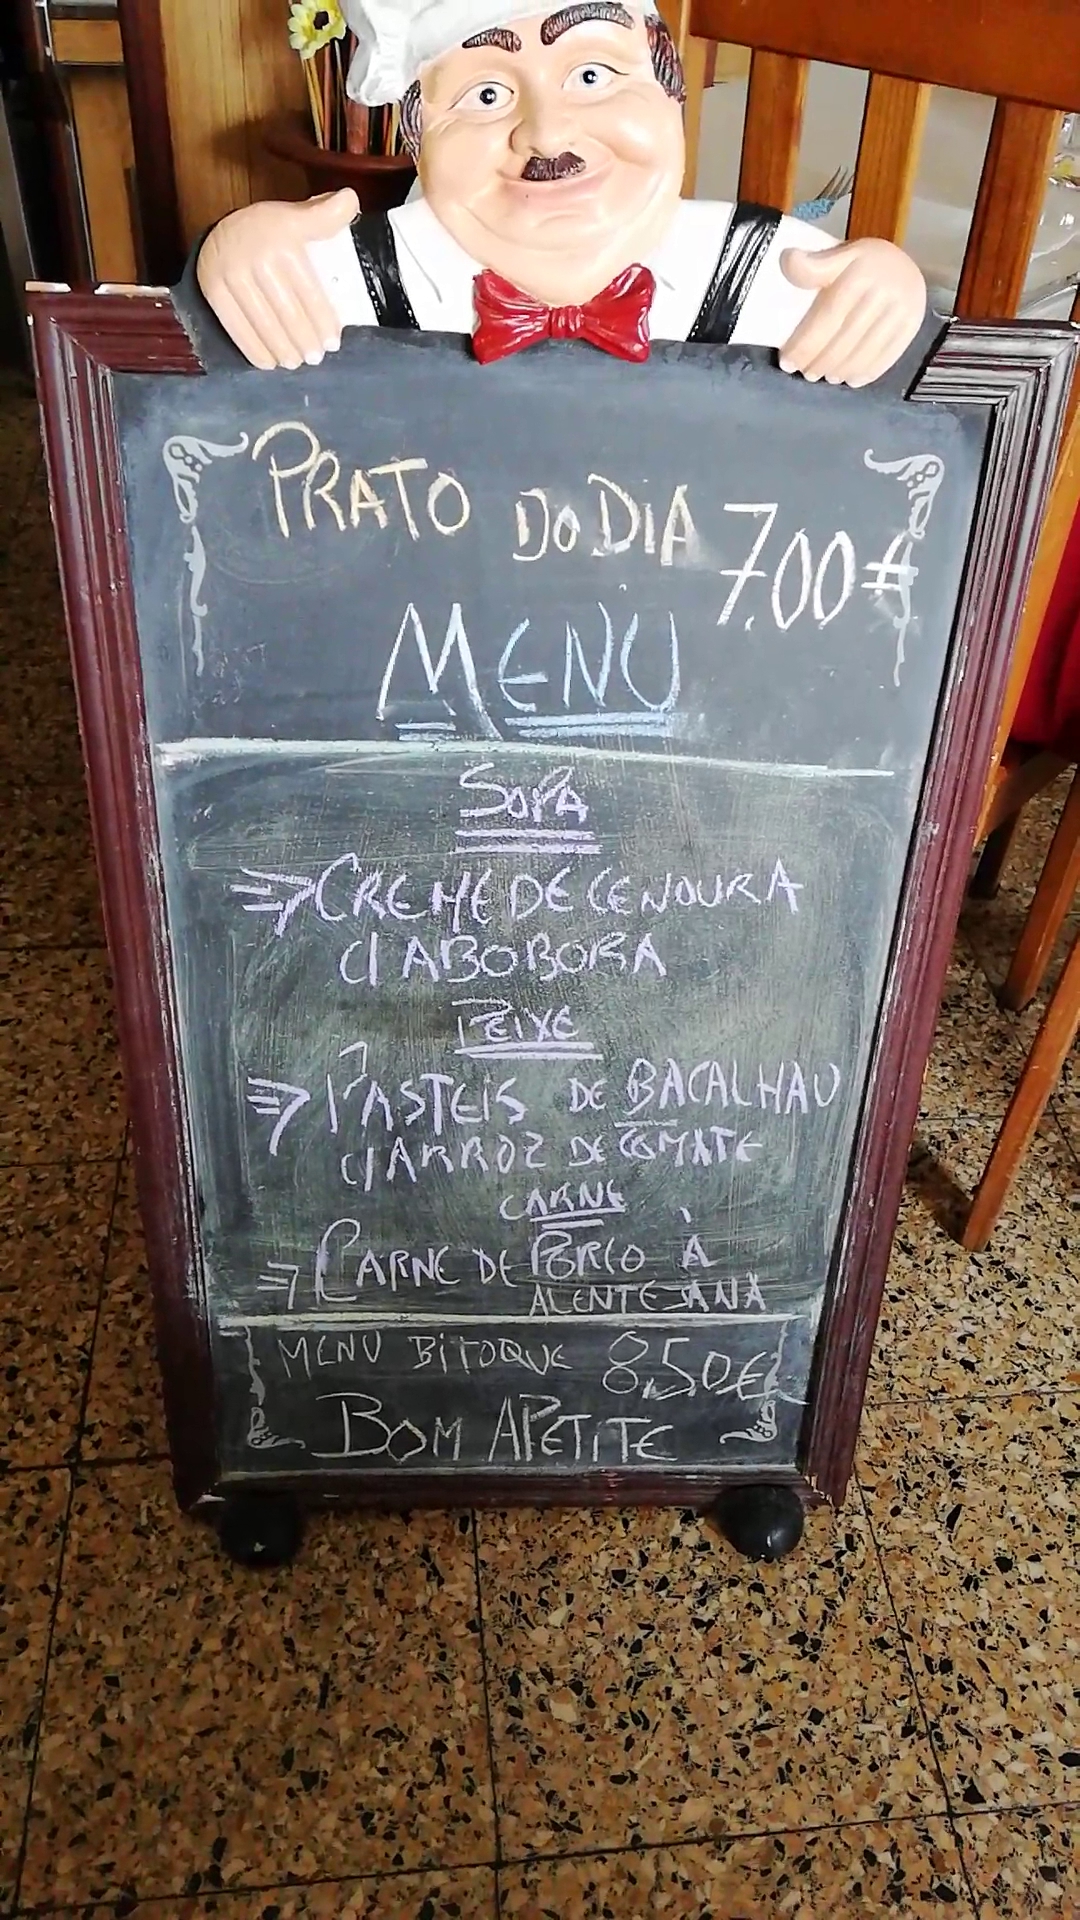 PRATO DO DIA 7.00€
MENU
SOPA
⇒ CREME DE CENOURA
C/ ABOBORA
PEIXE
⇒ PASTEIS DE BACALHAU
C/ ARROZ DE TOMATE
CARNE
⇒ CARNE DE PORCO À
ALENTEJANA
MENU BITOQUE 8,50€
BOM APETITE